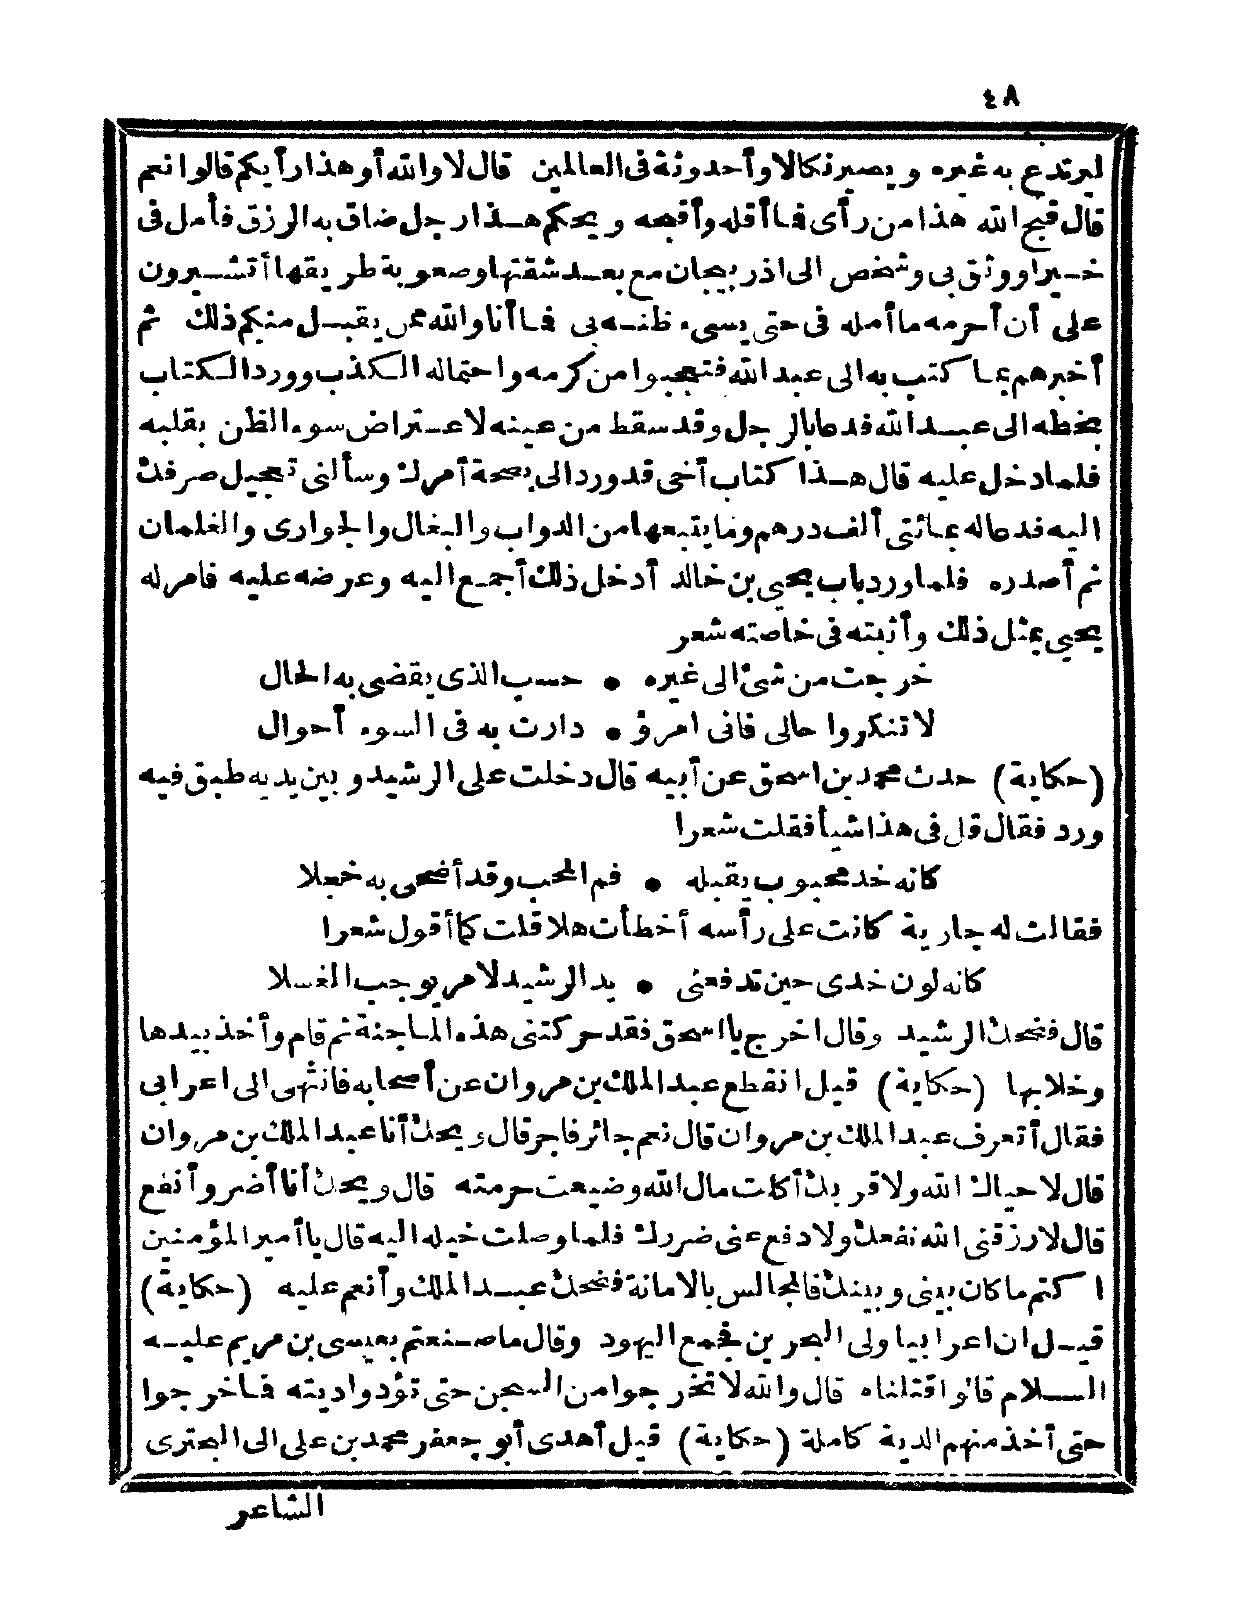 ٤٨
ليرتدع به غيره ويصير نكالا وأحدوثة فى العالمين قال لا والله أوهذا رأيكم قالوا نعم
قال قبح الله هذا من رأى فما أقله وأقبحه ويحكم هذا رجل ضاق به الرزق فأمل فى
خيرا ووثق بى وشخص الى اذربيجان مع بعد شقتها وصعوبة طريقها أتشيرون
على أن أحرمه ما أمله فى حتى يسىء ظنه بى فما أنا والله ممن يقبل منكم ذلك ثم
أخبرهم بما كتب به الى عبد الله فتعجبوا من كرمه واحتماله الكذب وورد الكتاب
بخطه الى عبد الله فدعا بالرجل وقد سقط من عينه لاعتراض سوء الظن بقلبه
فلما دخل عليه قال هذا كتاب أخى قد ورد الى بصحة أمرك وسألنى تعجيل صرفك
اليه فدعا له بمائتى ألف درهم وما يتبعها من الدواب والبغال والجوارى والغلمان
ثم أصدره فلما ورد باب يحيى بن خالد أدخل ذلك أجمع اليه وعرضه عليه فامر له
يحيى بمثل ذلك وأثبته فى خاصته شعر
خرجت من شئ الى غيره • حسب الذى يقضى به الحال
لا تنكروا حالى فانى امرؤ • دارت به فى السوء أحوال
(حكاية) حدث محمد بن اسحق عن أبيه قال دخلت على الرشيد و بين يديه طبق فيه
ورد فقال قل فى هذا شيأ فقلت شعرا
كانه خد محبوب يقبله • فم المحب وقد أضحى به خجلا
فقالت له جارية كانت على رأسه أخطأت هلا قلت كما أقول شعرا
كانه لون خدى حين تدفعنى • يد الرشيد لامر يوجب الغسلا
قال فضحك الرشيد وقال اخرج يا اسحق فقد حركتنى هذه الماجنة ثم قام وأخذ بيدها
وخلا بها (حكاية) قيل انقطع عبد الملك بن مروان عن أصحابه فانتهى الى اعرابى
فقال أتعرف عبد الملك بن مروان قال نعم جائر فاجر قال ويحك أنا عبد الملك بن مروان
قال لا حياك الله ولا قربك أكلت مال الله وضيعت حرمته قال ويحك أنا أضر وأنفع
قال لا رزقنى الله نفعك ولا دفع عنى ضررك فلما وصلت خيله اليه قال يا أمير المؤمنين
اكتم ما كان بينى وبينك فالمجالس بالامانة فضحك عبد الملك وأنعم عليه (حكاية)
قيل ان اعرابيا ولى البحرين فجمع اليهود وقال ما صنعتم بعيسى بن مريم عليه
السلام قالوا قتلناه قال والله لا تخرجوا من السجن حتى تؤدوا ديته فاخرجوا
حتى أخذ منهم الدية كاملة (حكاية) قيل أهدى أبو جعفر محمد بن على الى البحترى
الشاعر